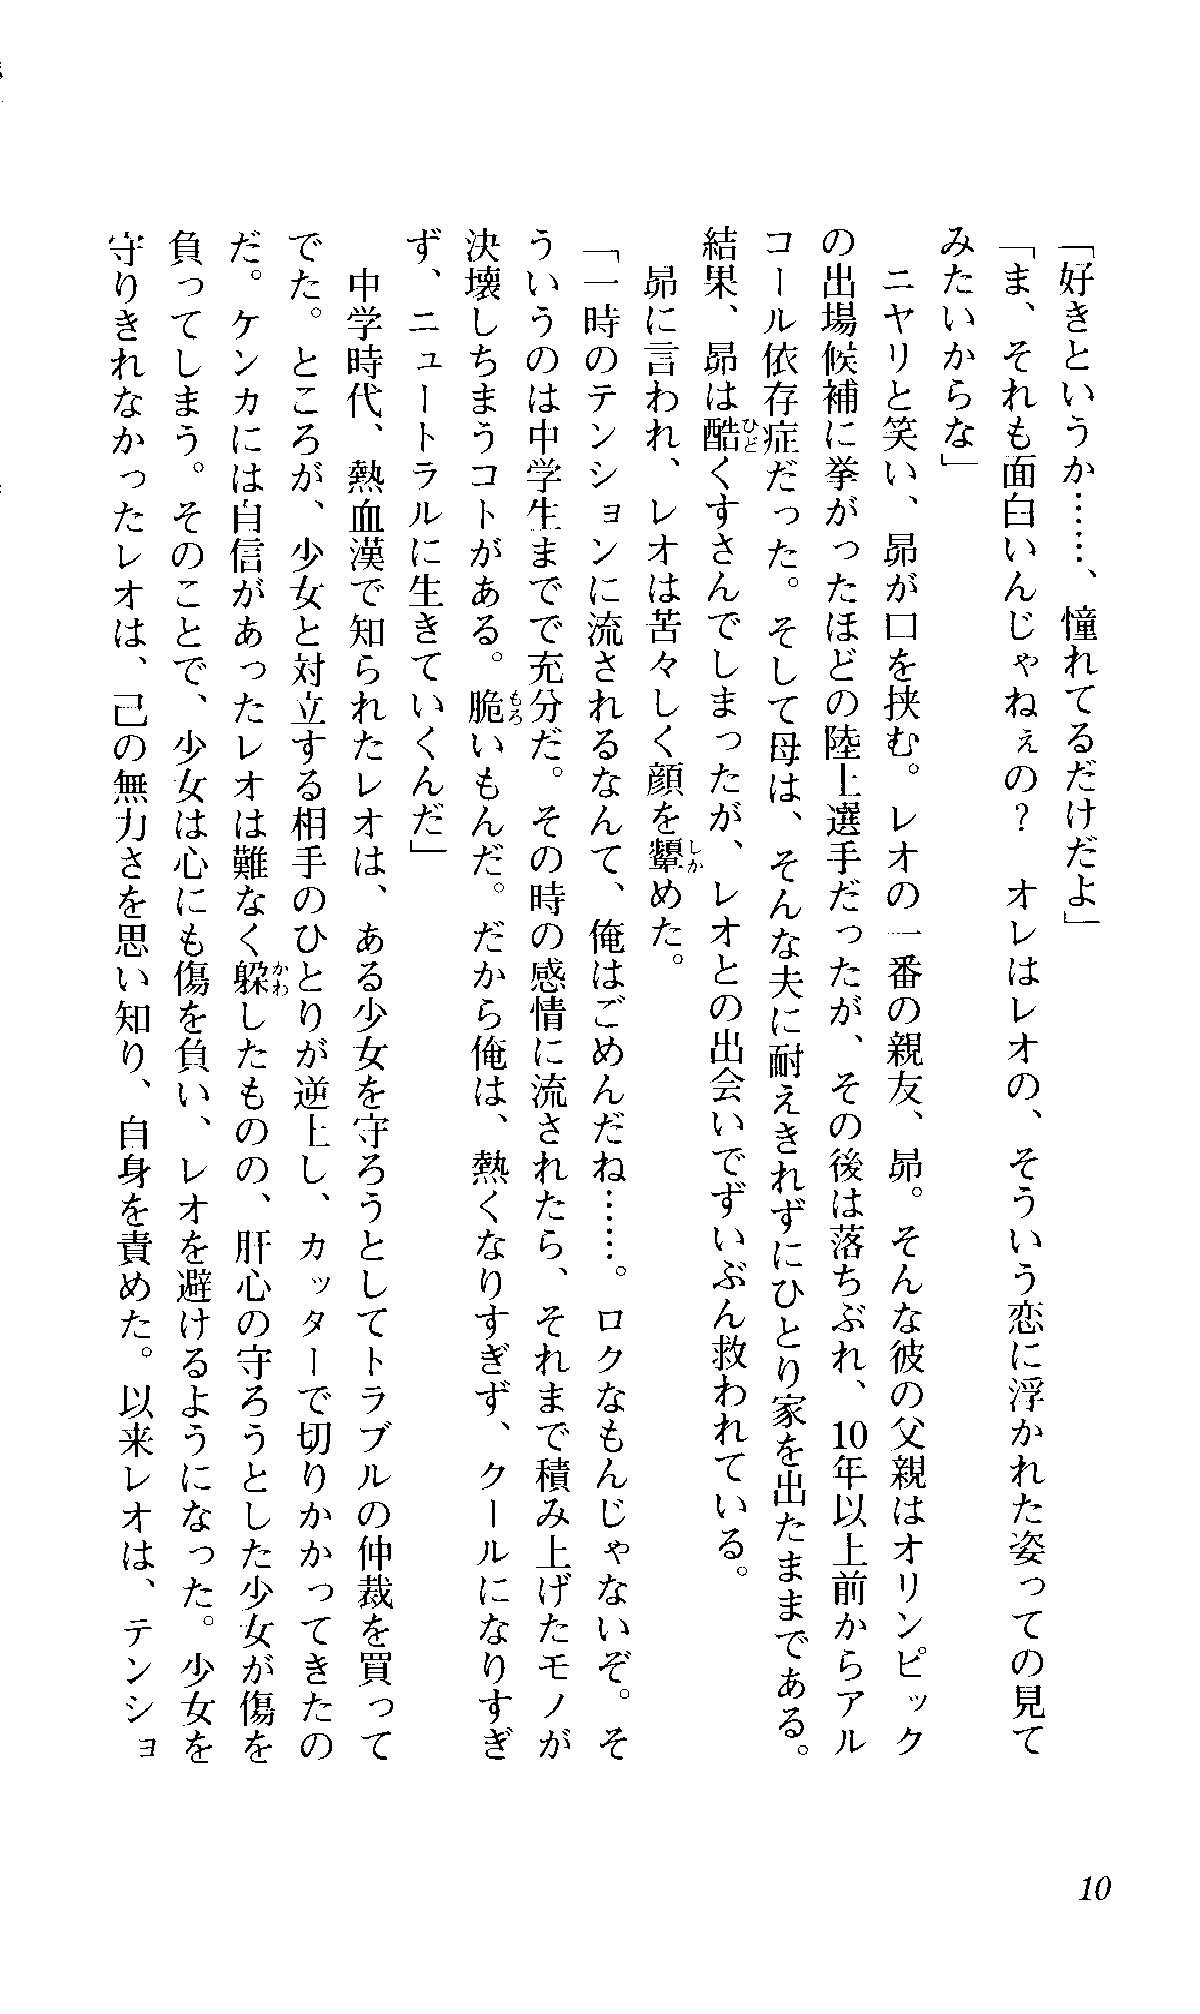 「好きというか……、憧れてるだけだよ」
「ま、それも面白いんじゃねぇの？　オレはレオの、そういう恋に浮かれた姿っての見て
みたいからな」
　ニヤリと笑い、昴が口を挟む。レオの一番の親友、昴。そんな彼の父親はオリンピック
の出場候補に挙がったほどの陸上選手だったが、その後は落ちぶれ、10年以上前からアル
コール依存症だった。そして母は、そんな夫に耐えきれずにひとり家を出たままである。
結果、昴は酷くすさんでしまったが、レオとの出会いでずいぶん救われている。
　昴に言われ、レオは苦々しく顔を顰めた。
「一時のテンションに流されるなんて、俺はごめんだね……。ロクなもんじゃないぞ。そ
ういうのは中学生までで充分だ。その時の感情に流されたら、それまで積み上げたモノが
決壊しちまうコトがある。脆いもんだ。だから俺は、熱くなりすぎず、クールになりすぎ
ず、ニュートラルに生きていくんだ」
　中学時代、熱血漢で知られたレオは、ある少女を守ろうとしてトラブルの仲裁を買って
でた。ところが、少女と対立する相手のひとりが逆上し、カッターで切りかかってきたの
だ。ケンカには自信があったレオは難なく躱したものの、肝心の守ろうとした少女が傷を
負ってしまう。そのことで、少女は心にも傷を負い、レオを避けるようになった。少女を
守りきれなかったレオは、己の無力さを思い知り、自身を責めた。以来レオは、テンショ
10